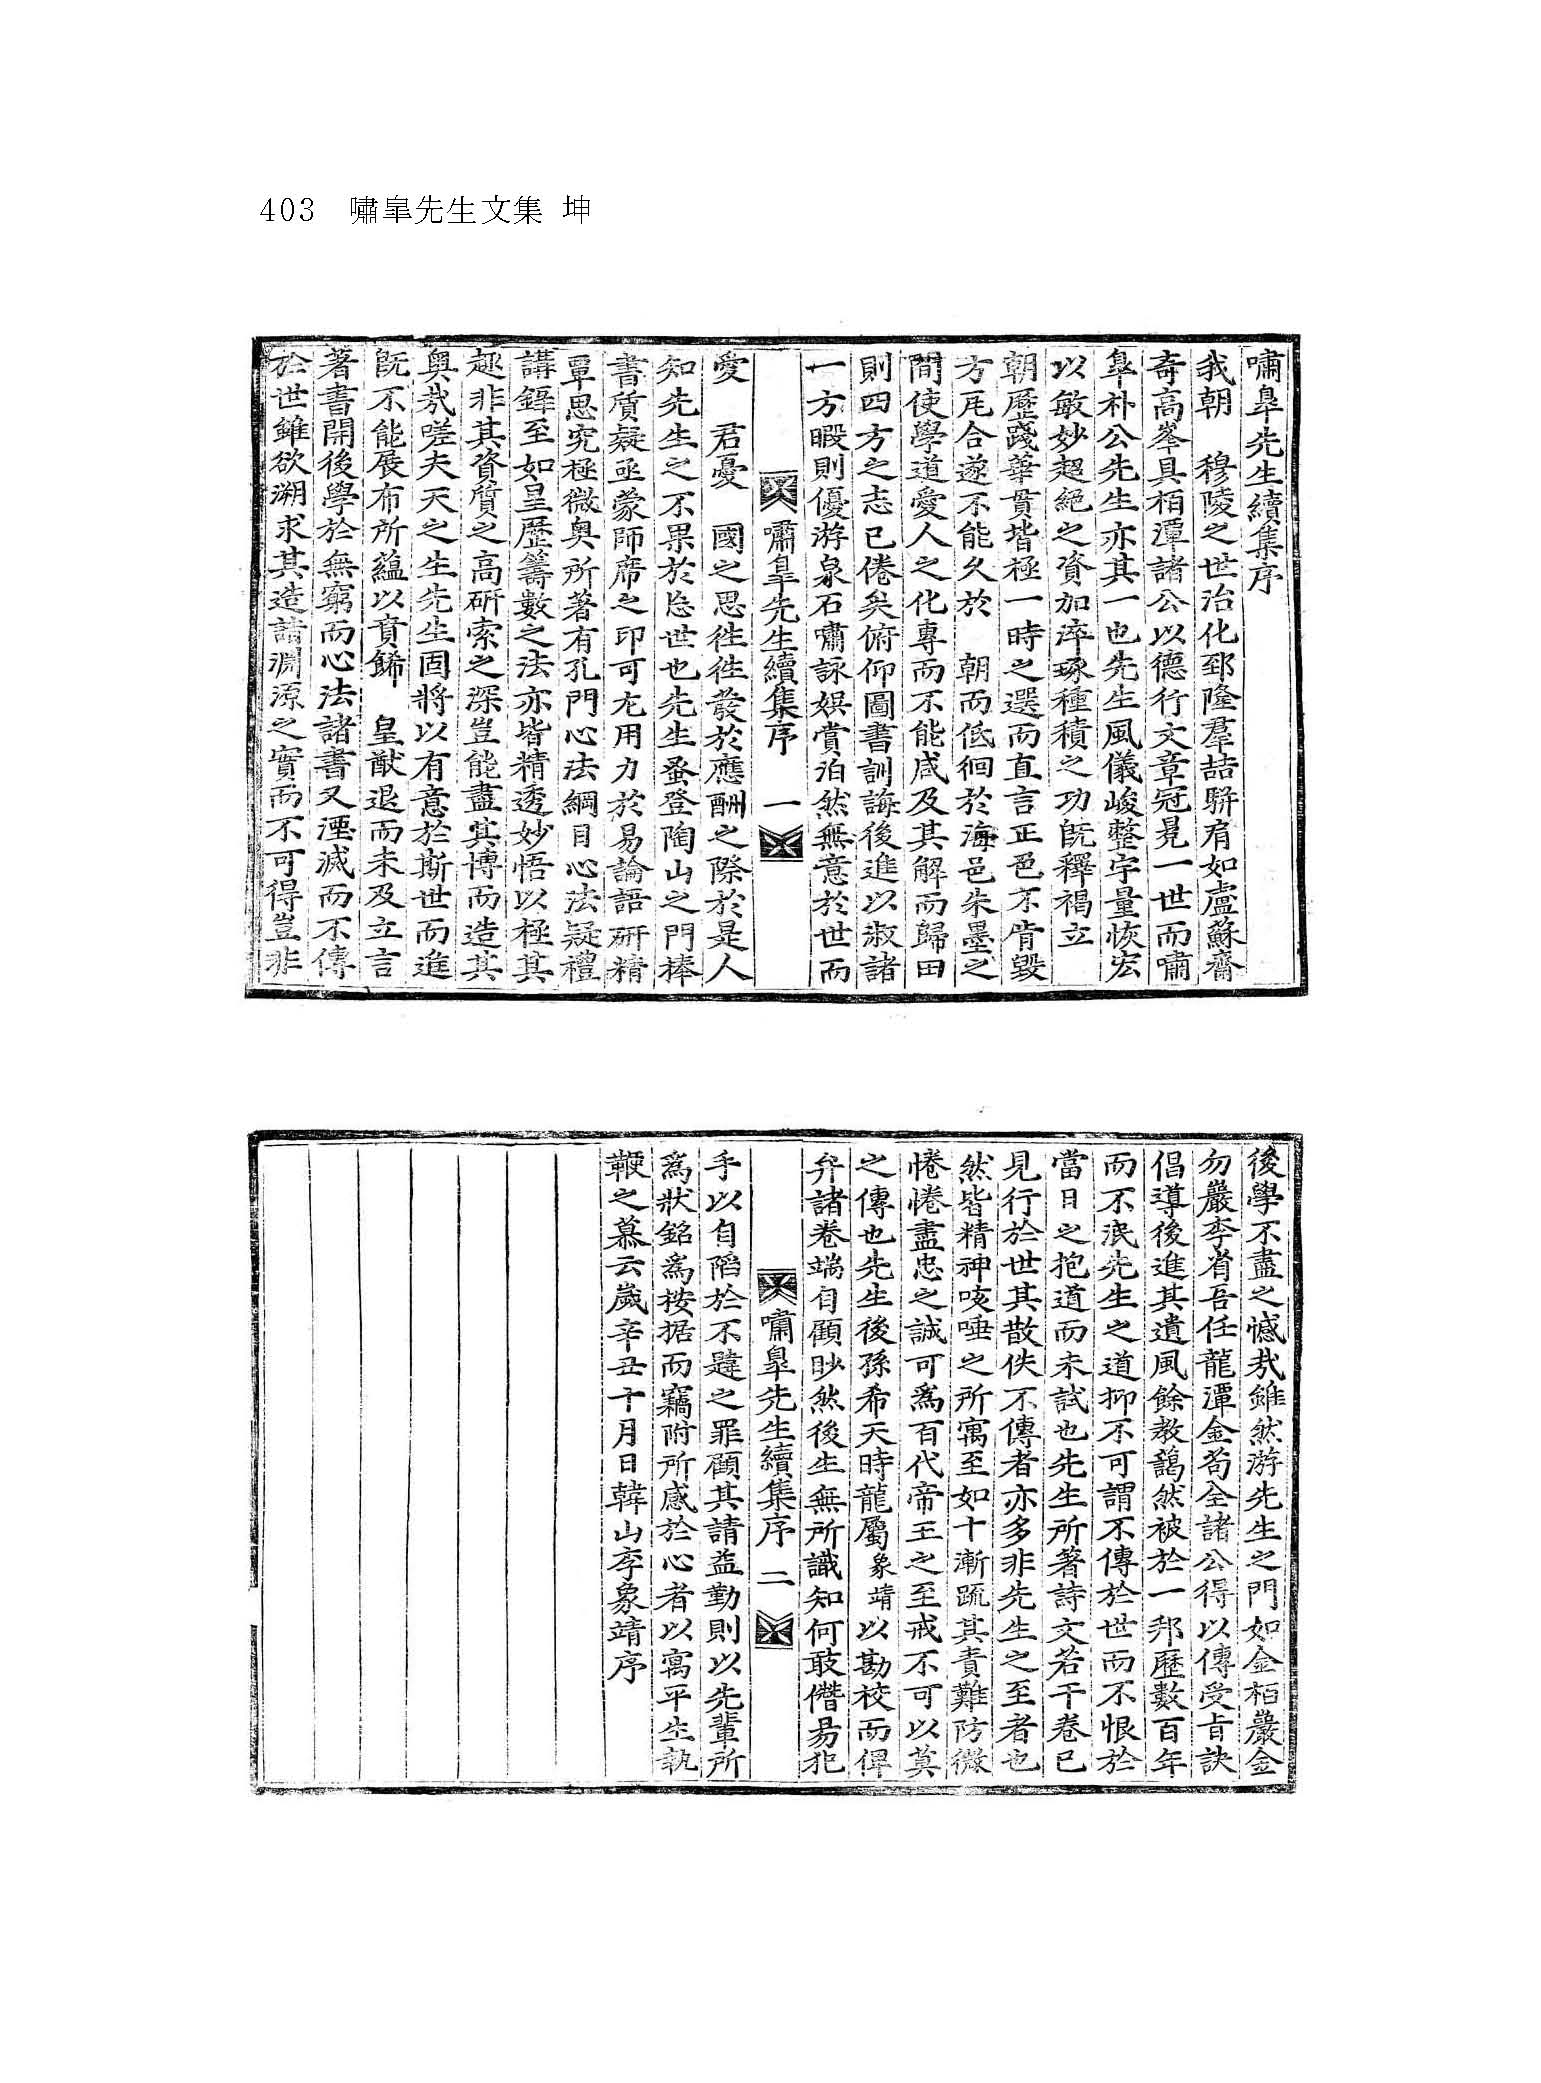 403 嘯皐先生文集 坤
嘯皐先生續集序
我朝 穆陵之世治化郅隆羣喆騈肩如盧蘇齋
奇高峯具栢潭諸公以德行文章冠冕一世而嘯
皐朴公先生亦其一也先生風儀峻整宇量恢宏
以敏妙超絶之資加淬琢種積之功旣釋褐立
朝歷踐華貫皆極一時之選而直言正色不肯毀
方瓦合遂不能久於 朝而低徊於海邑朱墨之
間使學道愛人之化專而不能咸及其解而歸田
則四方之志已倦矣俯仰圖書訓誨後進以淑諸
一方暇則優游泉石嘯詠娛賞泊然無意於世而
嘯皐先生續集序 一
愛 君憂 國之思徃徃發於應酬之際於是人
知先生之不果於忘世也先生蚤登陶山之門棒
書質疑亟蒙師席之印可尤用力於易論語硏精
覃思究極微奥所著有孔門心法綱目心法疑禮
講錄至如星歷籌數之法亦皆精透妙悟以極其
趣非其資質之高硏索之深豈能盡其博而造其
奥㢤嗟夫天之生先生固將以有意於斯世而進
旣不能展布所蘊以賁餙 皇猷退而未及立言
著書開後學於無窮而心法諸書又湮滅而不傳
於世雖欲溯求其造請淵源之實而不可得豈非
後學不盡之憾㢤雖然游先生之門如金栢巖金
勿巖李省吾任龍潭金苟全諸公得以傳受旨訣
倡導後進其遺風餘敎藹然被於一邦歷數百年
而不泯先生之道抑不可謂不傳於世而不恨於
當日之抱道而未試也先生所著詩文若干卷已
見行於世其散佚不傳者亦多非先生之至者也
然皆精神咳唾之所寓至如十漸疏其責難防微
惓惓盡忠之誠可爲百代帝王之至戒不可以莫
之傳也先生後孫希天時龍屬象靖以勘校而俾
弁諸卷端自顧眇然後生無所識知何敢僭易犯
嘯皐先生續集序 二
手以自陷於不韙之罪顧其請益勤則以先輩所
爲狀銘爲按据而竊附所感於心者以寓平生執
鞭之慕云歲辛丑十月日韓山李象靖序